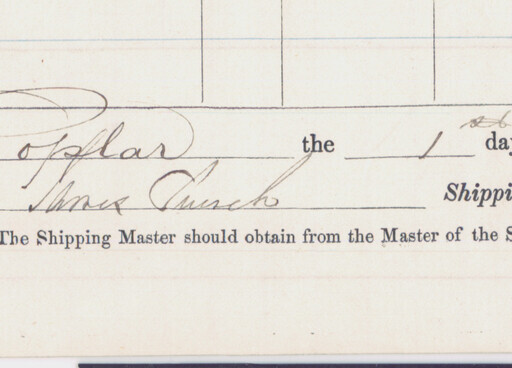 Popflar the 1st day
James Church Shippi
The Shipping Master should obtain from the Master of the S